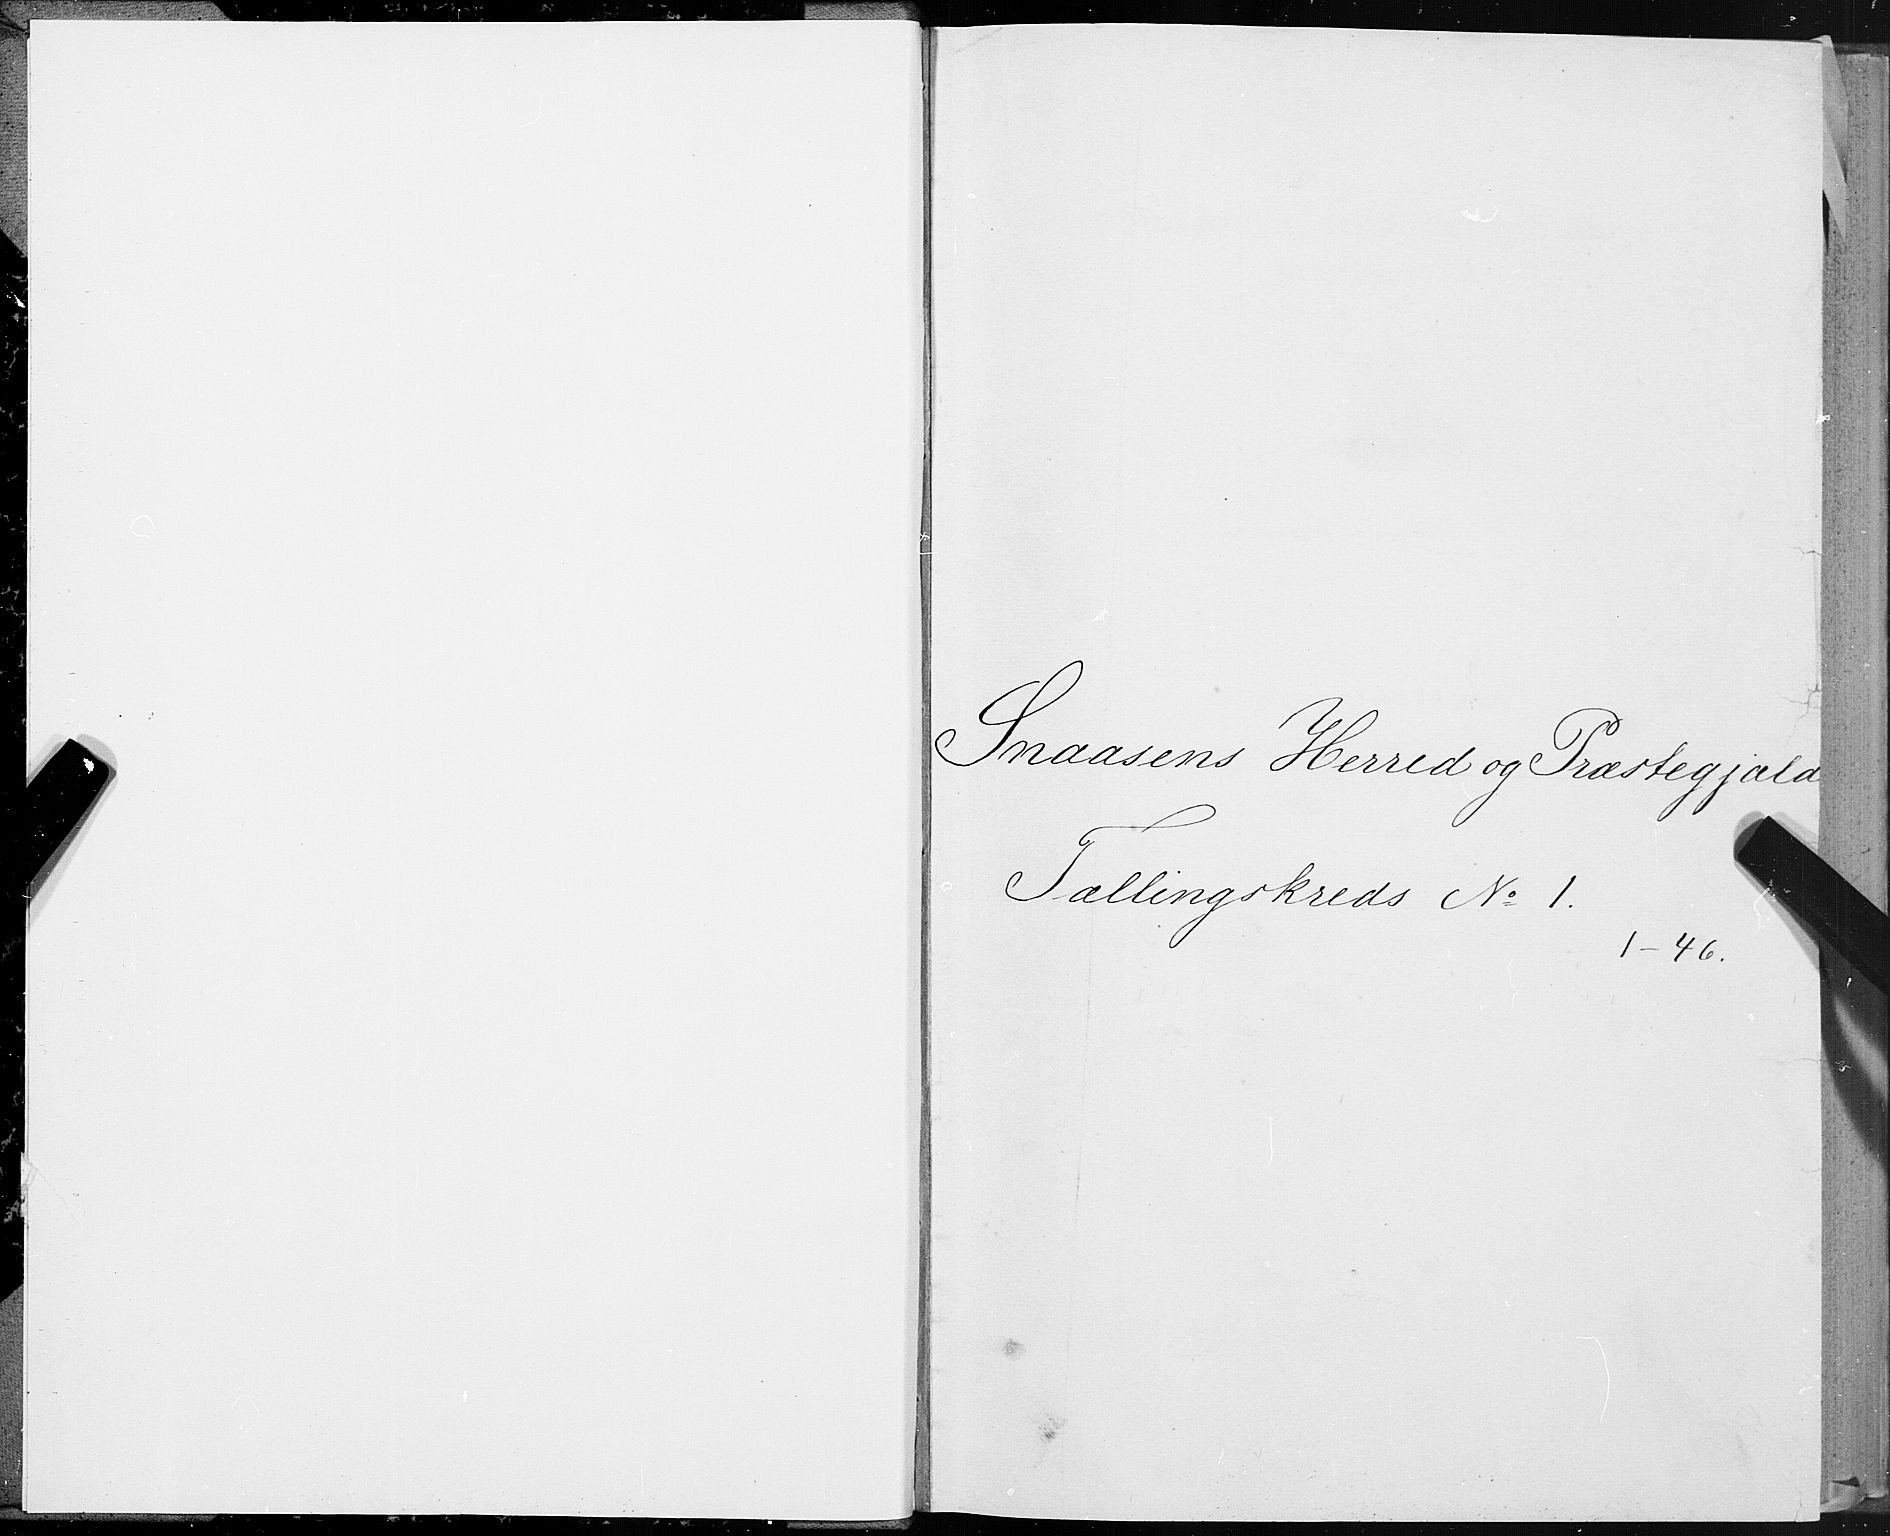 Snaasens Herred og Præstegjæld
Tællingskreds № 1.
1-46.